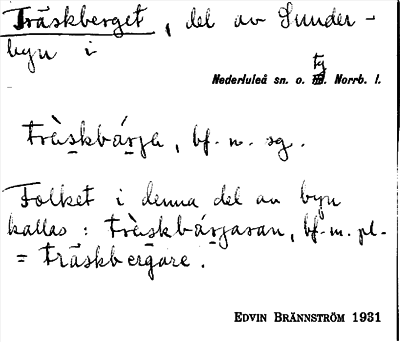 Träskberget, del av Sunder-
byn i
ty
Nederluleå sn. o. Norrb. l.
träskbárja, bf. n. sg.
Folket i denna del av byn
kallas : träskbárjaran, bf. m. pl.
= träskbergare.
EDVIN BRÄNNSTRÖM 1931